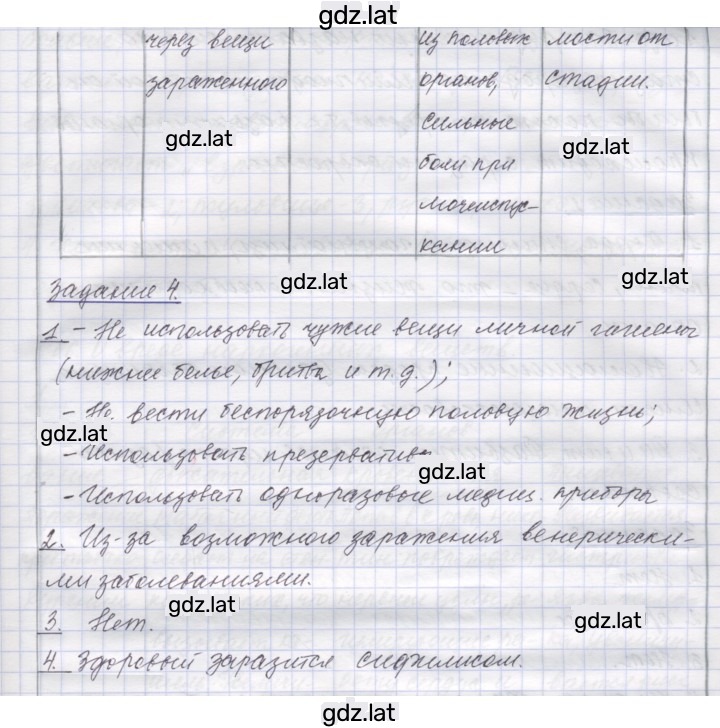 gdz.lat
через вещи из половых мости от
зараженного органов, стадии.
gdz.lat сильные gdz.lat
боли при
мочеиспус-
кании
Задание 4. gdz.lat gdz.lat
1. - Не использовать чужие вещи личной гигиены
(нижнее белье, бритва и т.д.);
- Не вести беспорядочную половую жизнь;
gdz.lat
- Использовать презерватив
gdz.lat
- Использовать одноразовые медиц. приборы
2. Из-за возможного заражения венерически-
ми заболеваниями.
gdz.lat
3. Нет. gdz.lat
4. Здоровый заразится сифилисом.
gdz.lat